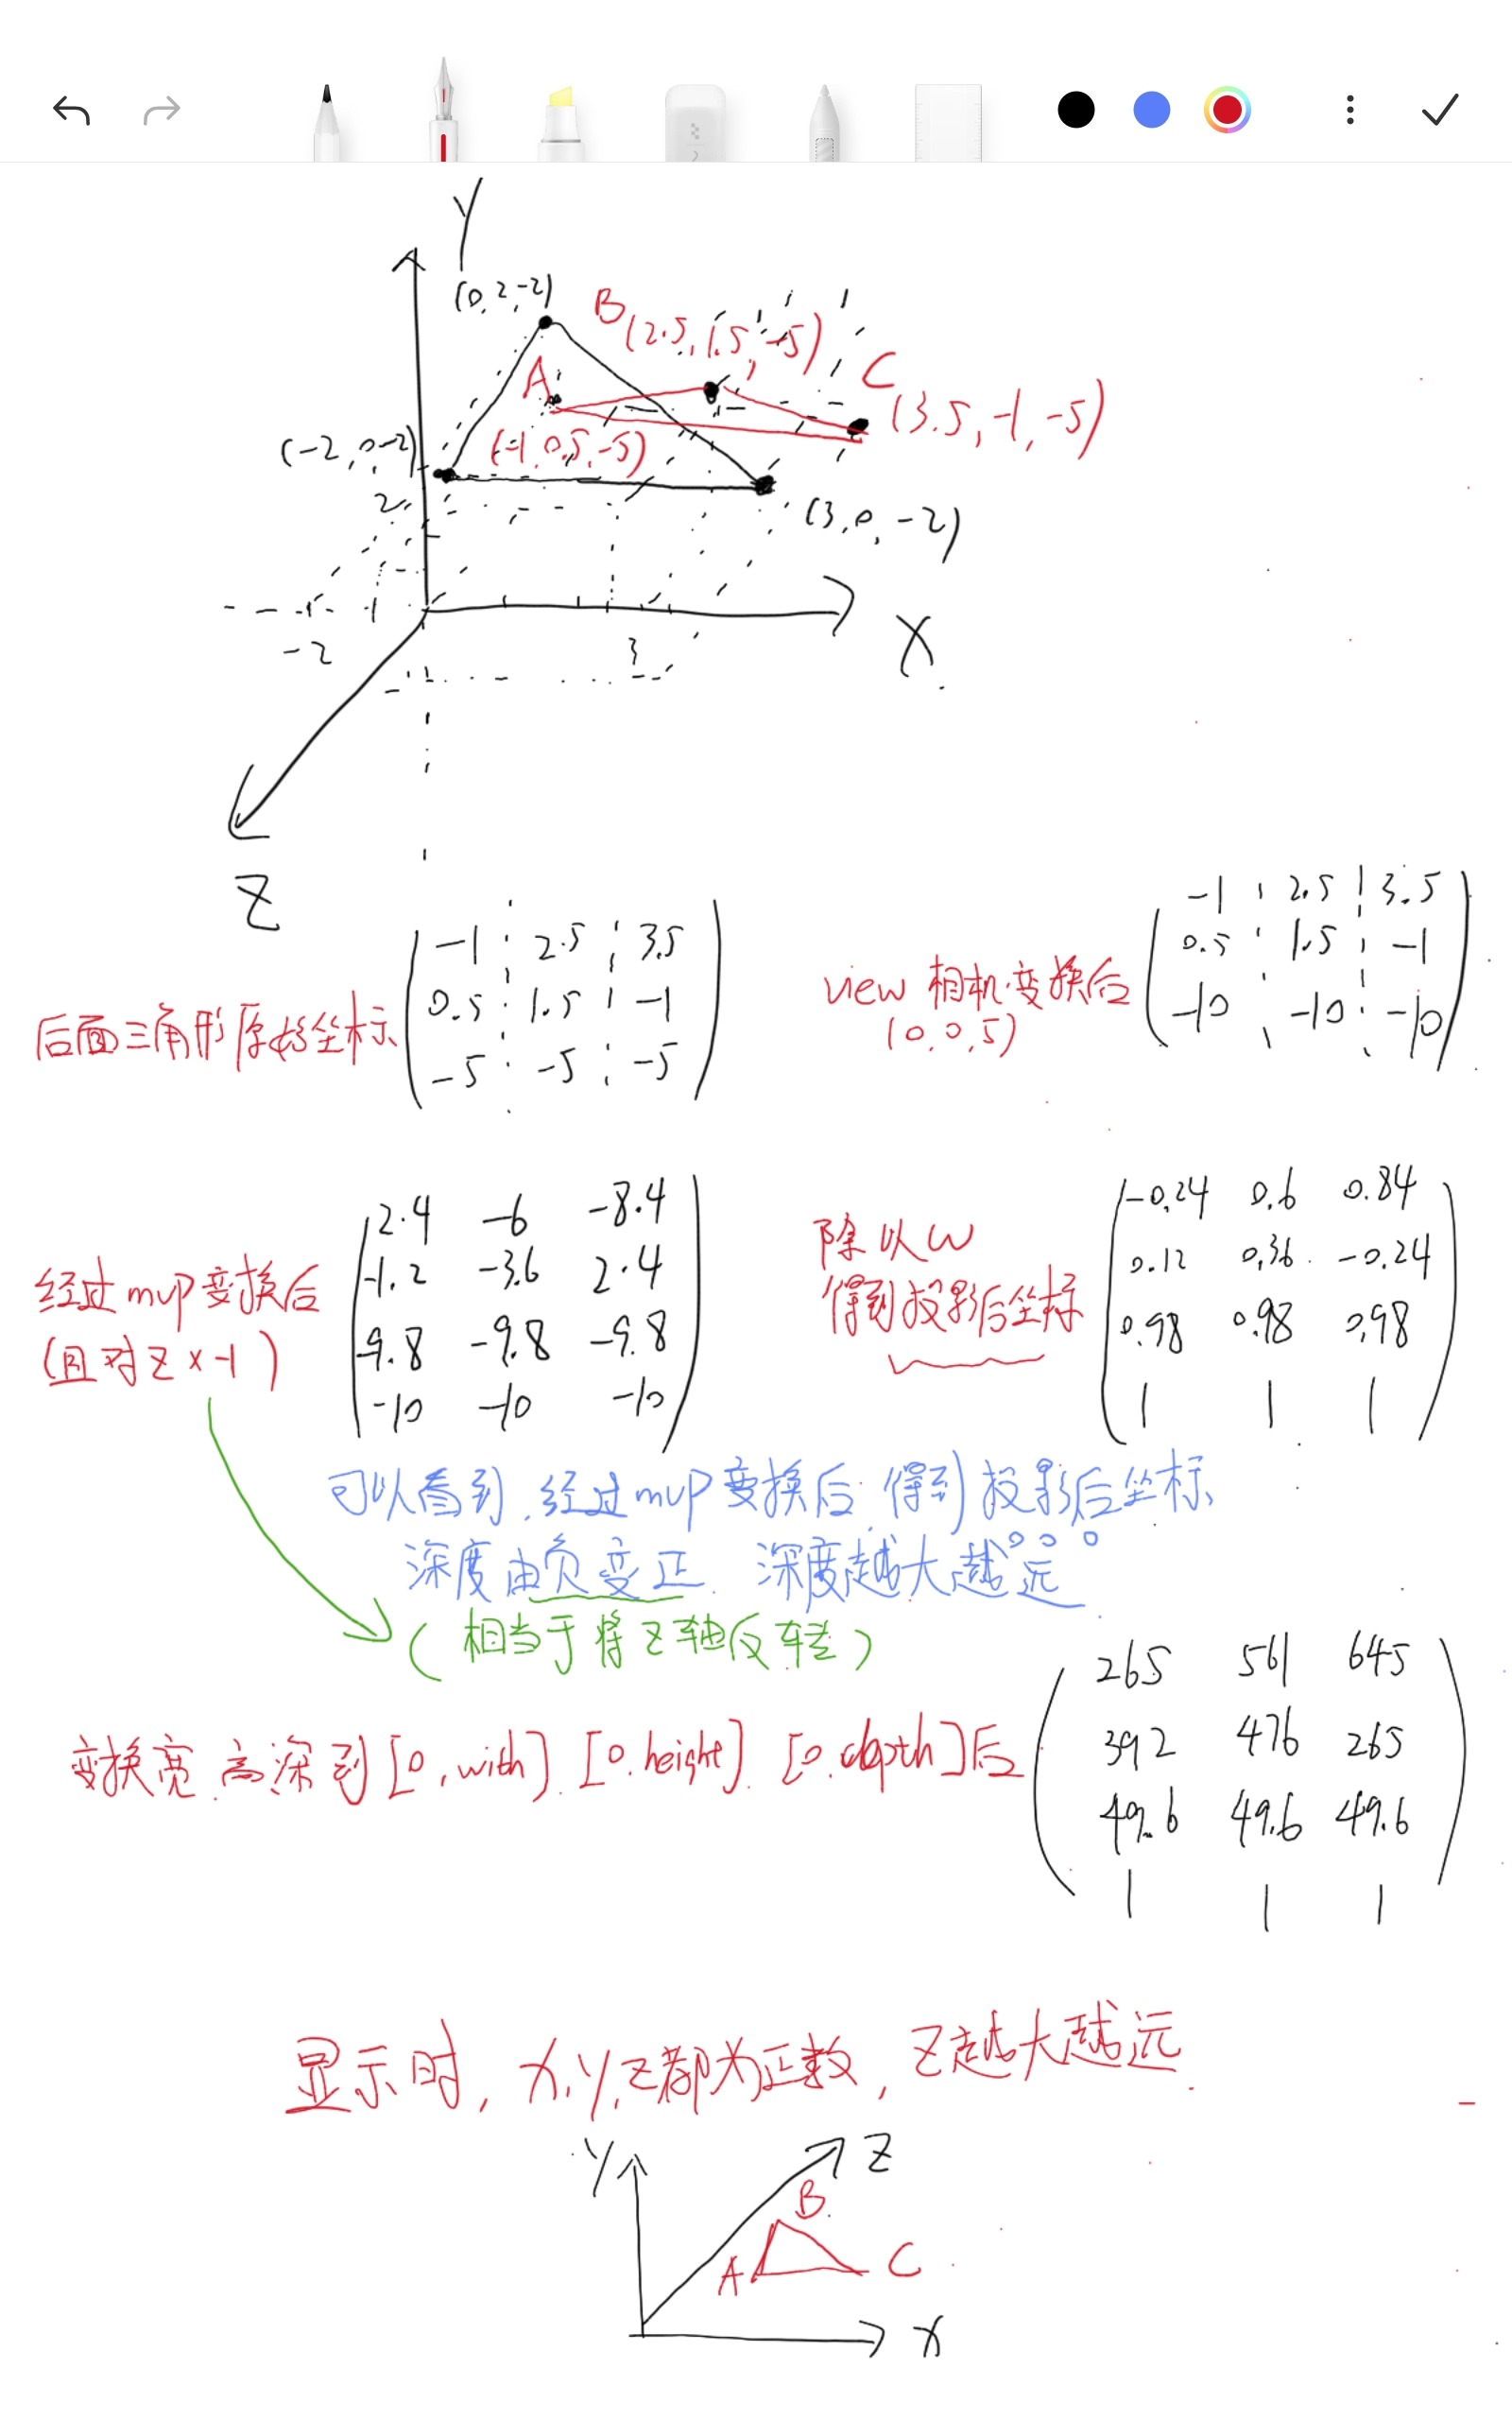 Y
(0,2,-2)
B(2.5,1.5,-5)
A
C(3.5,-1,-5)
(-2,0,-2)
(-1,0.5,-5)
(3,0,-2)
2
-1
-2
3
X
Z
后面三角形原始坐标
-1 2.5 3.5
0.5 1.5 -1
-5 -5 -5
view 相机变换后
(0,0,5)
-1 2.5 3.5
0.5 1.5 -1
-10 -10 -10
经过mvp变换后
(且对Z x -1)
2.4 -6 -8.4
-1.2 -3.6 2.4
-9.8 -9.8 -9.8
-10 -10 -10
除以w
得到投影后坐标
-0.24 0.6 0.84
0.12 0.36 -0.24
0.98 0.98 0.98
1 1 1
可以看到,经过mvp变换后,得到投影后坐标,
深度由负变正. 深度越大越远
(相当于将Z轴反转)
变换宽.高深到[0,with].[0.height].[0.depth]后
265 561 645
392 476 265
49.6 49.6 49.6
1 1 1
显示时,X,Y,Z都为正数,Z越大越远.
Y
Z
B
A
C
X